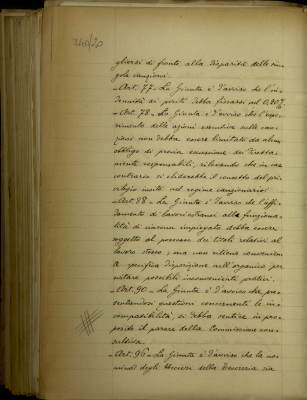 340/20
gliersi di fronte alla disparità delle sin-
gole cauzioni.
-Art. 77 - La Giunta è d'avviso che l'in-
dennità ai periti debba fissarsi nel 0,20%
-Art. 78 - La Giunta è d'avviso che l'espe-
rimento delle azioni esecutive sulle cau-
zioni non debba essere limitato da alcun
obbligo di previa escussione dei diretta-
mente responsabili, rilevando che in caso
contrario si eluderebbe il concetto del pri-
vilegio insito nel regime cauzionario.
-Art. 88 - La Giunta è d'avviso che l'affi-
damento di lavori estranei alla funziona-
lità di ciascun impiegato debba essere
soggetto al possesso dei titoli relativi al
lavoro stesso; ma non ritiene convenien-
te specifica disposizione nell'organico per
evitare possibili inconvenienti pratici.
-Art. 90 - La Giunta è d'avviso che, pre-
sentandosi questioni concernenti le in-
compatibilità, si debba sentire in pro-
posito il parere della Commissione con-
sultiva.
-Art. 96 - La Giunta è d'avviso che la no-
mina degli Uscieri della Tesoreria sia